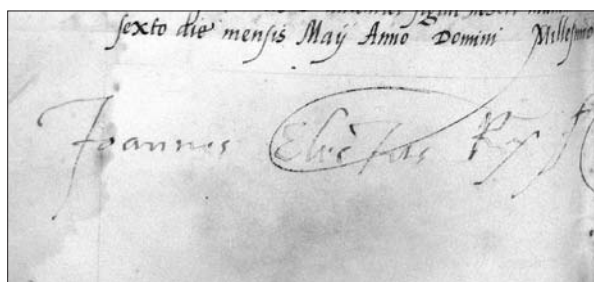 sexto die mensis Maÿ Anno Domini Millesimo
Joannes Electus Rex